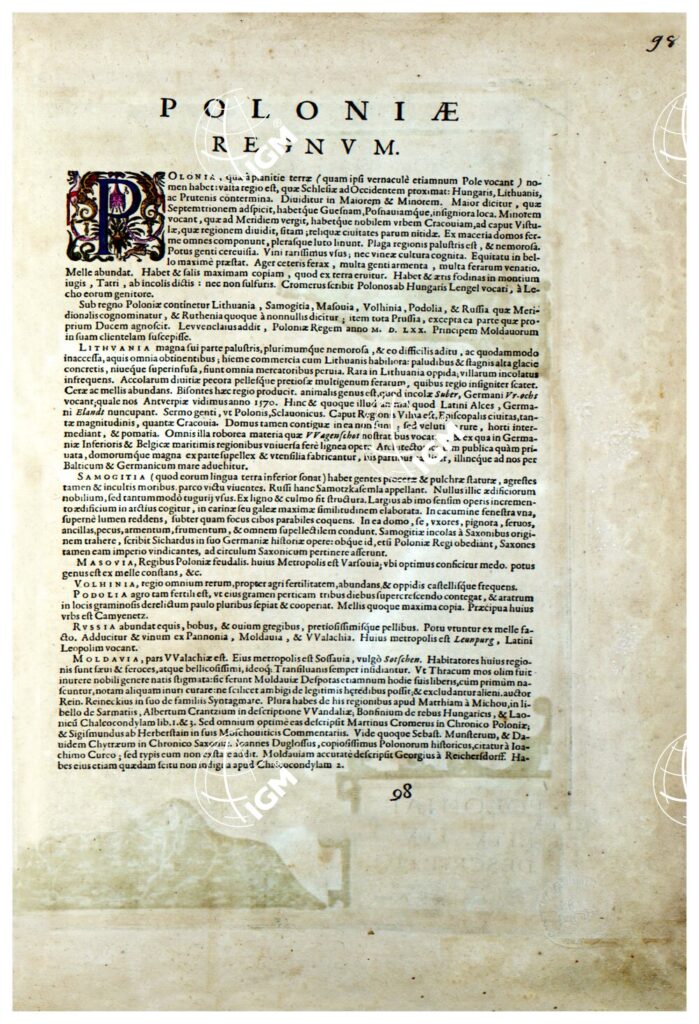 98
POLONIÆ
REGNVM.
POLONIA, quæ à planitie terræ (quam ipsi vernaculè etiamnum Pole vocant) no-
men habet: vasta regio est, quæ Schlesiæ ad Occidentem proximat: Hungaris, Lithuanis,
ac Prutenis contermina. Diuiditur in Maiorem & Minorem. Maior dicitur, quæ
Septemtrionem adspicit, habetque Guesnam, Posnauiamque, insigniora loca. Minorem
vocant, quæ ad Meridiem vergit, habetque nobilem vrbem Cracouiam, ad caput Vistu-
læ, quæ regionem diuidit, sitam; reliquæ ciuitates parum nitidæ. Ex maceria domos fer-
me omnes componunt, plerasque luto linunt. Plaga regionis palustris est, & nemorosa.
Potus genti cereuisia. Vini rarissimus vsus; nec vineæ cultura cognita. Equitatu in bel-
lo maximè præstat. Ager ceteris ferax, multa genti armenta, multa ferarum venatio.
Melle abundat. Habet & salis maximam copiam, quod ex terra eruitur. Habet & æris fodinas in montium
iugis, Tatri, ab incolis dictis: nec non sulfuris. Cromerus scribit Polonos ab Hungaris Lengel vocari, à Le-
cho eorum genitore.
Sub regno Poloniæ continetur Lithuania, Samogitia, Masouia, Volhinia, Podolia, & Russia quæ Meri-
dionalis cognominatur, & Ruthenia quoque à nonnullis dicitur; item tota Prussia, excepta ea parte quæ pro-
prium Ducem agnoscit. Levvenclaius addit, Poloniæ Regem anno M. D. LXX. Principem Moldauorum
in suam clientelam suscepisse.
LITHVANIA magna sui parte palustris, plurimumque nemorosa, & eo difficilis aditu, ac quodammodo
inaccessa, aquis omnia obtinentibus; hieme commercia cum Lithuanis habiliora: paludibus & stagnis alta glacie
concretis, niueque superinfusa, fiunt omnia mercatoribus peruia. Rara in Lithuania oppida, villarum incolatus
infrequens. Accolarum diuitiæ pecora pellesque pretiosæ multigenum ferarum, quibus regio insigniter scatet.
Ceræ ac mellis abundans. Bisontes hæc regio producit. animalis genus est, quod incolæ Suber, Germani Vr-ochs
vocant, quales nos Antverpiæ vidimus anno 1570. Hinc & quoque illud animal quod Latini Alces, Germa-
ni Elandt nuncupant. Sermo genti, vt Polonis, Sclauonicus. Caput Regionis Vilna est, Episcopalis ciuitas, tan-
tæ magnitudinis, quantæ Cracouia. Domus tamen contiguæ in ea non sunt; sed veluti rure, horti inter-
mediant, & pomaria. Omnis illa roborea materia quæ VVagenschot nostratibus vocatur, & ex qua in Germa-
niæ Inferioris & Belgicæ maritimis regionibus vniuersa ferè lignea opera Architectonicæ tam publica quàm pri-
uata, domorumque magna ex parte supellex & vtensilia fabricantur, his partibus cæditur, illincque ad nos per
Balticum & Germanicum mare aduehitur.
SAMOGITIA (quod eorum lingua terra inferior sonat) habet gentes proceræ & pulchræ staturæ, agrestes
tamen & incultis moribus, parco victu viuentes. Russi hanc Samotzkasemla appellant. Nullus illic ædificiorum
nobilium, sed tantummodò tugurij vsus. Ex ligno & culmo fit structura. Largius ab imo sensim operis incremen-
to ædificium in arctius cogitur, in carinæ seu galeæ maximè similitudinem elaborata. In cacumine fenestra vna,
supernè lumen reddens, subter quam focus cibos parabiles coquens. In ea domo, se, vxores, pignora, seruos,
ancillas, pecus, armentum, frumentum, & omnem supellectilem condunt. Samogitiæ incolas à Saxonibus origi-
nem trahere, scribit Sichardus in suo Germaniæ historiæ opere: obque id, etsi Poloniæ Regi obediant, Saxones
tamen eam imperio vindicantes, ad circulum Saxonicum pertinere asserunt.
MASOVIA, Regibus Poloniæ feudalis. huius Metropolis est Varsouia; vbi optimus conficitur medo. potus
genus est ex melle constans, &c.
VOLHINIA, regio omnium rerum, propter agri fertilitatem, abundans, & oppidis castellisque frequens.
PODOLIA agro tam fertili est, vt eius gramen perticam tribus diebus supercrescendo contegat, & aratrum
in locis graminosis derelictum paulo pluribus sepiat & cooperiat. Mellis quoque maxima copia. Præcipua huius
vrbs est Camyenetz.
RVSSIA abundat equis, bobus, & ouium gregibus, pretiosissimisque pellibus. Potu vtuntur ex melle fa-
cto. Adducitur & vinum ex Pannonia, Moldauia, & VValachia. Huius metropolis est Leunpurg, Latini
Leopolim vocant.
MOLDAVIA, pars VValachiæ est. Eius metropolis est Sossauia, vulgò Sotschen. Habitatores huius regio-
nis sunt sæui & feroces, atque bellicosissimi, ideoq; Transiluanis semper insidiantur. Vt Thracum mos olim fuit
inurere nobili generе natis stigmata: sic ferunt Moldauiæ Despotas etiamnum hodie suis liberis, cum primùm na-
scuntur, notam aliquam inuri curare: ne scilicet ambigi de legitimis heredibus possit, & excludantur alieni. auctor
Rein. Reineckius in suo de familiis Syntagmate. Plura habes de his regionibus apud Matthiam à Michou, in li-
bello de Sarmatiis, Albertum Crantzium in descriptione VVandaliæ, Bonfinium de rebus Hungaricis, & Lao-
nicũ Chalcocondylam lib. 1. & 3. Sed omnium optimè eas descripsit Martinus Cromerus in Chronico Poloniæ;
& Sigismundus ab Herberstain in suis Moschouiticis Commentariis. Vide quoque Sebast. Munsterum, & Da-
uidem Chytræum in Chronico Saxoniæ. Ioannes Duglossus, copiosissimus Polonorum historicus, citatur à Ioa-
chimo Cureo; sed typis eum non extare addit. Moldauiam accuratè descripsit Georgius à Reichersdorff. Ha-
bes eius etiam quædam scitu non indigna apud Chalcocondylam 2.
98
IGM
IGM
IGM